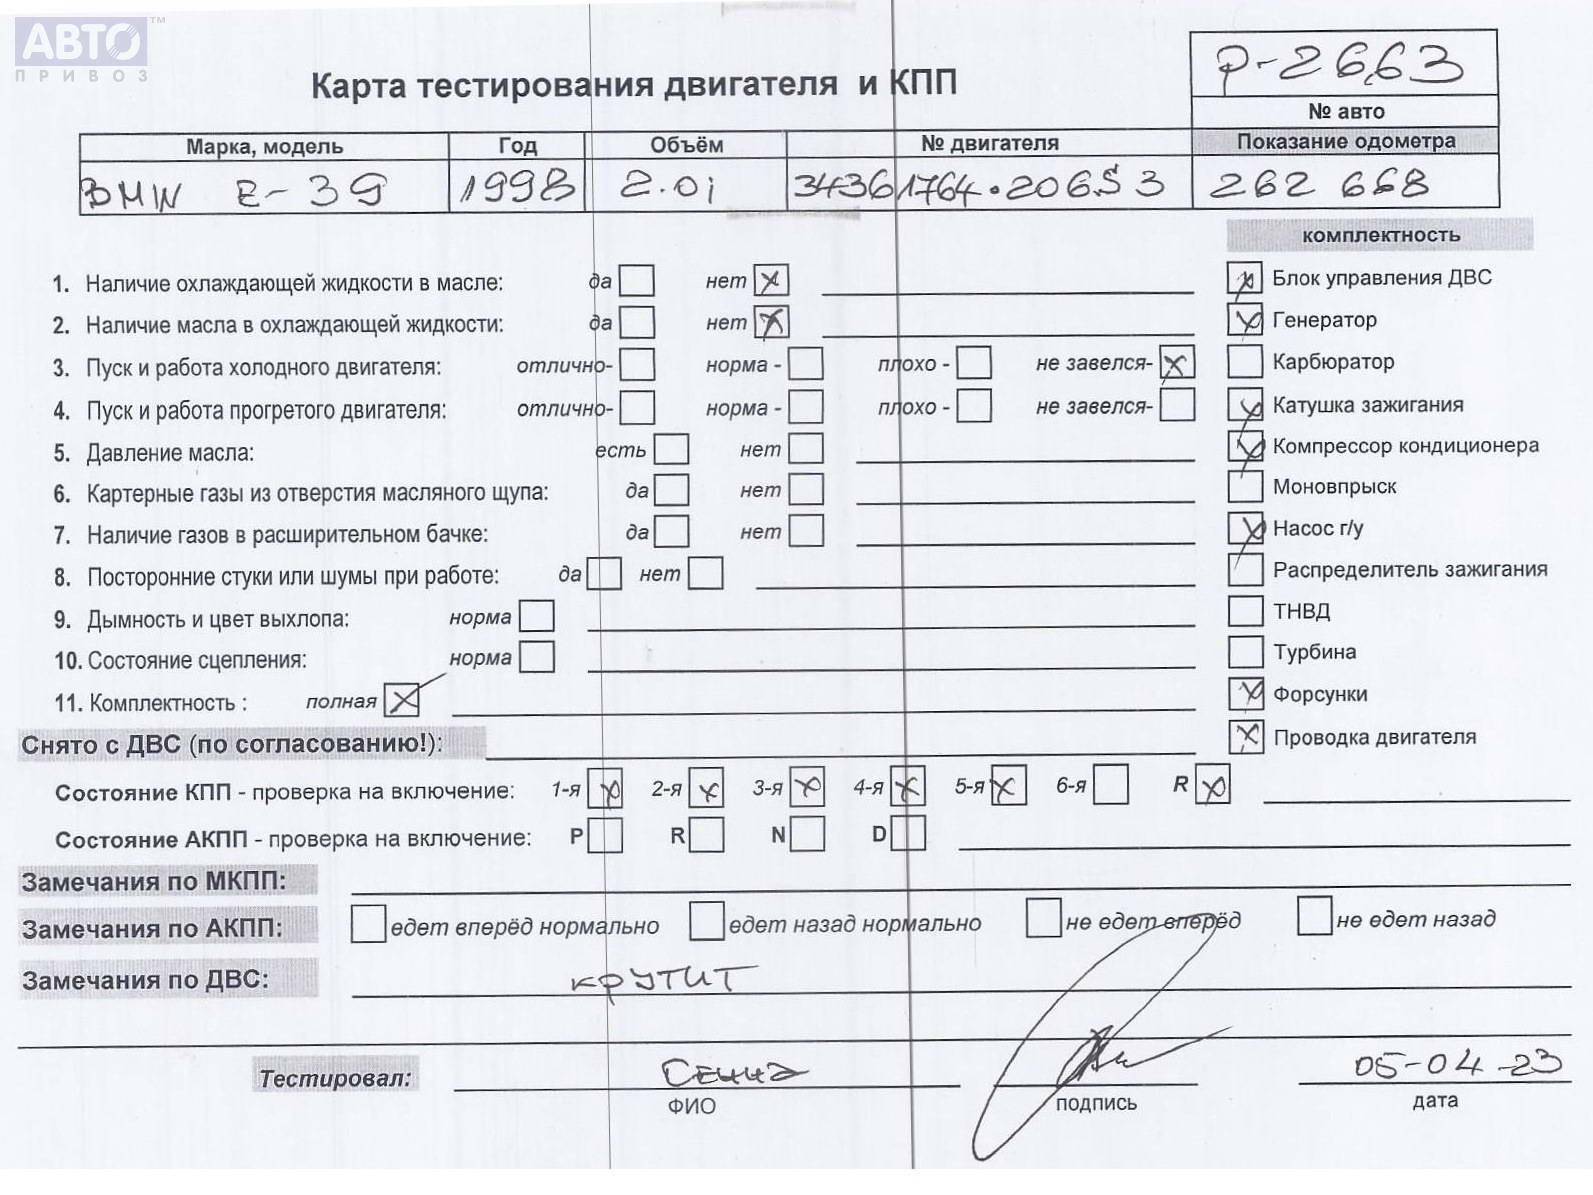 АВТО ™
ПРИВОЗ
Р-2663
Карта тестирования двигателя и КПП
№ авто
Марка, модель Год Объём № двигателя Показание одометра
BMW E-39 1998 2.0i 34361764·206S3 262 668
комплектность
1. Наличие охлаждающей жидкости в масле: да нет x Блок управления ДВС
2. Наличие масла в охлаждающей жидкости: да нет x Генератор
3. Пуск и работа холодного двигателя: отлично- норма - плохо - не завелся- x Карбюратор
4. Пуск и работа прогретого двигателя: отлично- норма - плохо - не завелся- Катушка зажигания
5. Давление масла: есть нет Компрессор кондиционера
6. Картерные газы из отверстия масляного щупа: да нет Моновпрыск
7. Наличие газов в расширительном бачке: да нет Насос г/у
8. Посторонние стуки или шумы при работе: да нет Распределитель зажигания
9. Дымность и цвет выхлопа: норма ТНВД
10. Состояние сцепления: норма Турбина
11. Комплектность : полная x Форсунки
Снято с ДВС (по согласованию!): Проводка двигателя
Состояние КПП - проверка на включение: 1-я x 2-я x 3-я x 4-я x 5-я x 6-я R x
Состояние АКПП - проверка на включение: P R N D
Замечания по МКПП:
Замечания по АКПП: едет вперёд нормально едет назад нормально не едет вперёд не едет назад
Замечания по ДВС: крутит
Тестировал: 05-04-23
ФИО подпись дата